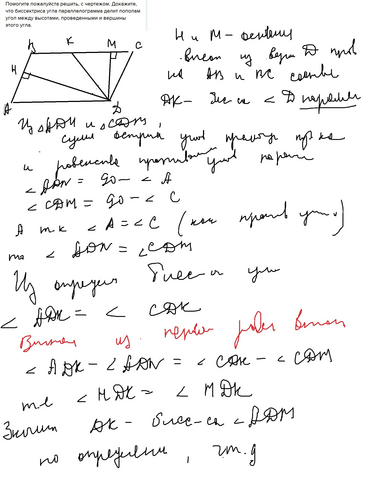 Помогите пожалуйста решить, с чертежом. Докажите,
что биссектриса угла параллелограмма делит пополам
угол между высотами, проведенными и вершины
этого угла.
B K M C
H
A D
H и M - основания
высот из верш D пров
на AB и BC соотве
DK - бис-са < D паралле
Из △ADH и △CDM,
сумме острых углов прямоуг
и равенства противополож углов паралл
< ADH = 90 - < A
< CDM = 90 - < C
А т.к < A = < C (как против угл.)
то < ADH = < CDM
Из определ бисс-са угл
< ADK = < CDK
Вычтем из перв равен
< ADK - < ADH = < CDK - < CDM
т.е < HDK = < MDK
Значит DK - бисс-са
по определени, чт.д